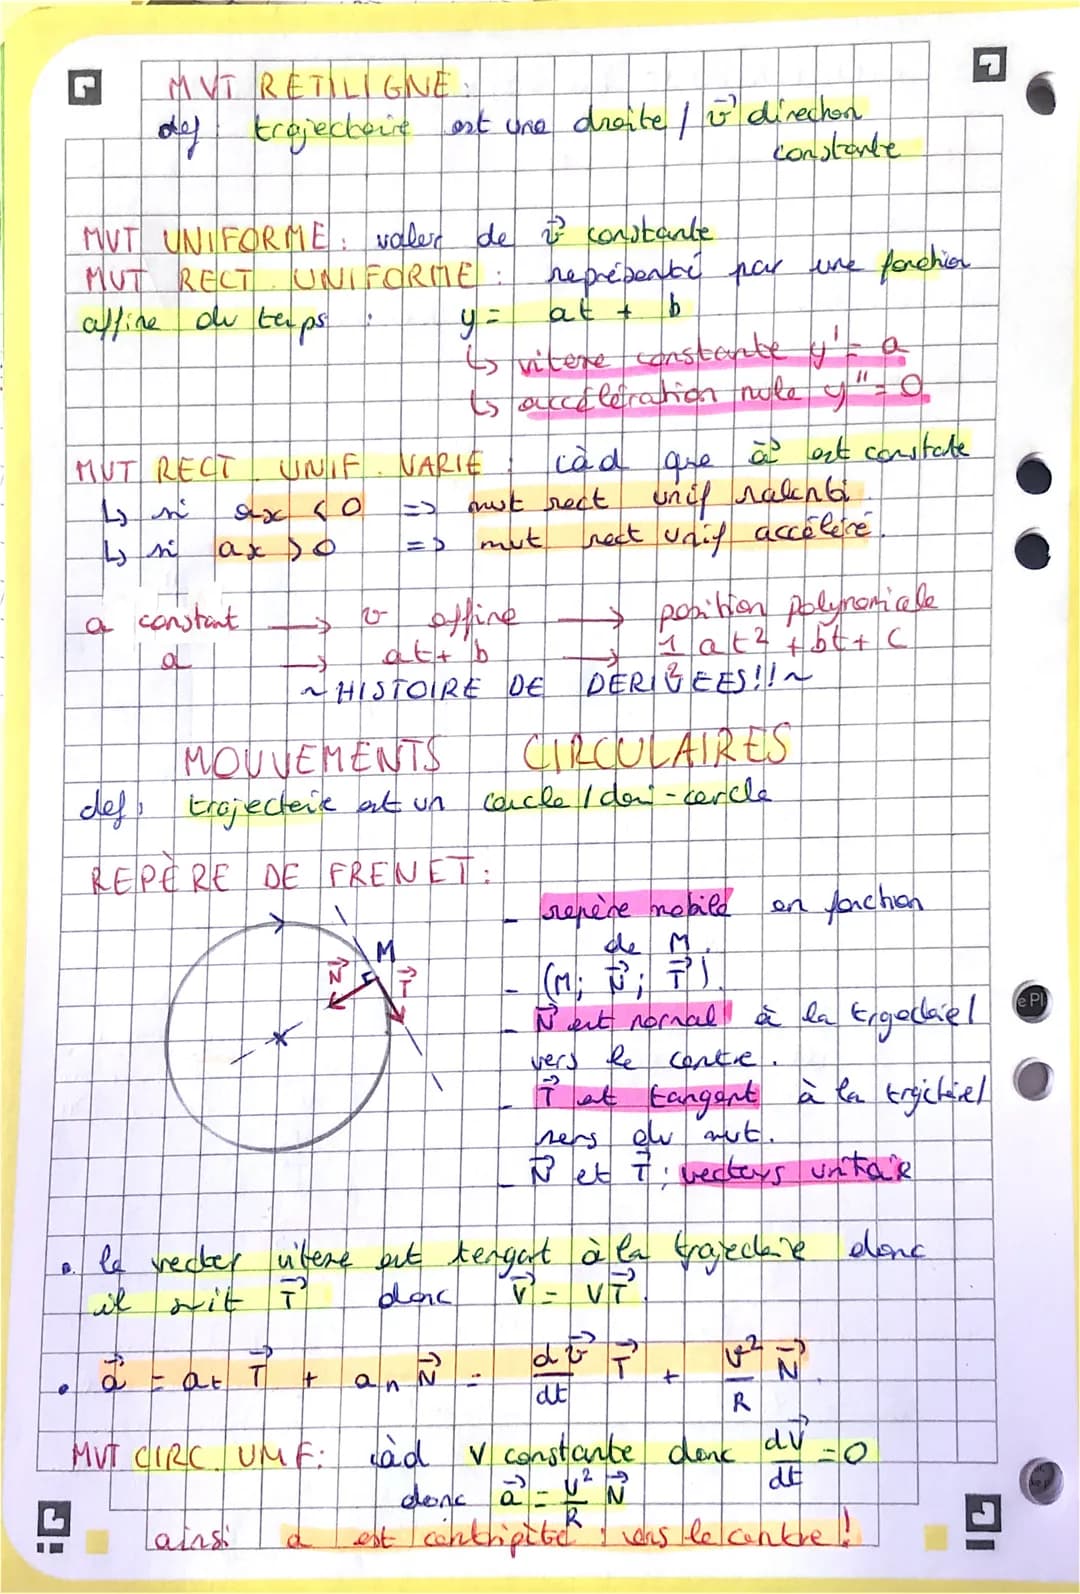 MVT RETILIGNE :
def trajectoire est une droite / v⃗ direction
constante
MVT UNIFORME : valeur de v⃗ constante
MVT RECT. UNIFORME : représenté par une fonction
affine du temps : y = at + b
↳ vitesse constante y' = a
↳ accélération nulle y" = 0.
MVT RECT. UNIF. VARIÉ : càd que a⃗ est constate
↳ si ax < 0 => mvt rect unif ralenti.
↳ si ax > 0 => mvt rect unif accéléré.
a constant → v affine → position polynomiale
a → at + b → 1/2 at² + bt + c
~ HISTOIRE DE DERIVEES!! ~
MOUVEMENTS CIRCULAIRES
def : trajectoire est un cercle / demi-cercle
REPÈRE DE FRENET :
- repère mobile en fonction
de M.
- (M; N⃗; T⃗).
- N⃗ est normal à la trajectoire/
vers le centre.
- T⃗ est tangent à la trajectoire/
sens du mvt.
- N⃗ et T⃗ : vecteurs unitaire
M
N⃗
T⃗
• le vecteur vitesse est tangent à la trajectoire donc
il suit T⃗ donc v⃗ = vT⃗.
• a⃗ = at T⃗ + an N⃗ = dv⃗/dt T⃗ + v²/R N⃗.
MVT CIRC. UNIF : càd v constante donc dv⃗/dt = 0
donc a⃗ = v²/R N⃗
ainsi a est centripète : vers le centre !